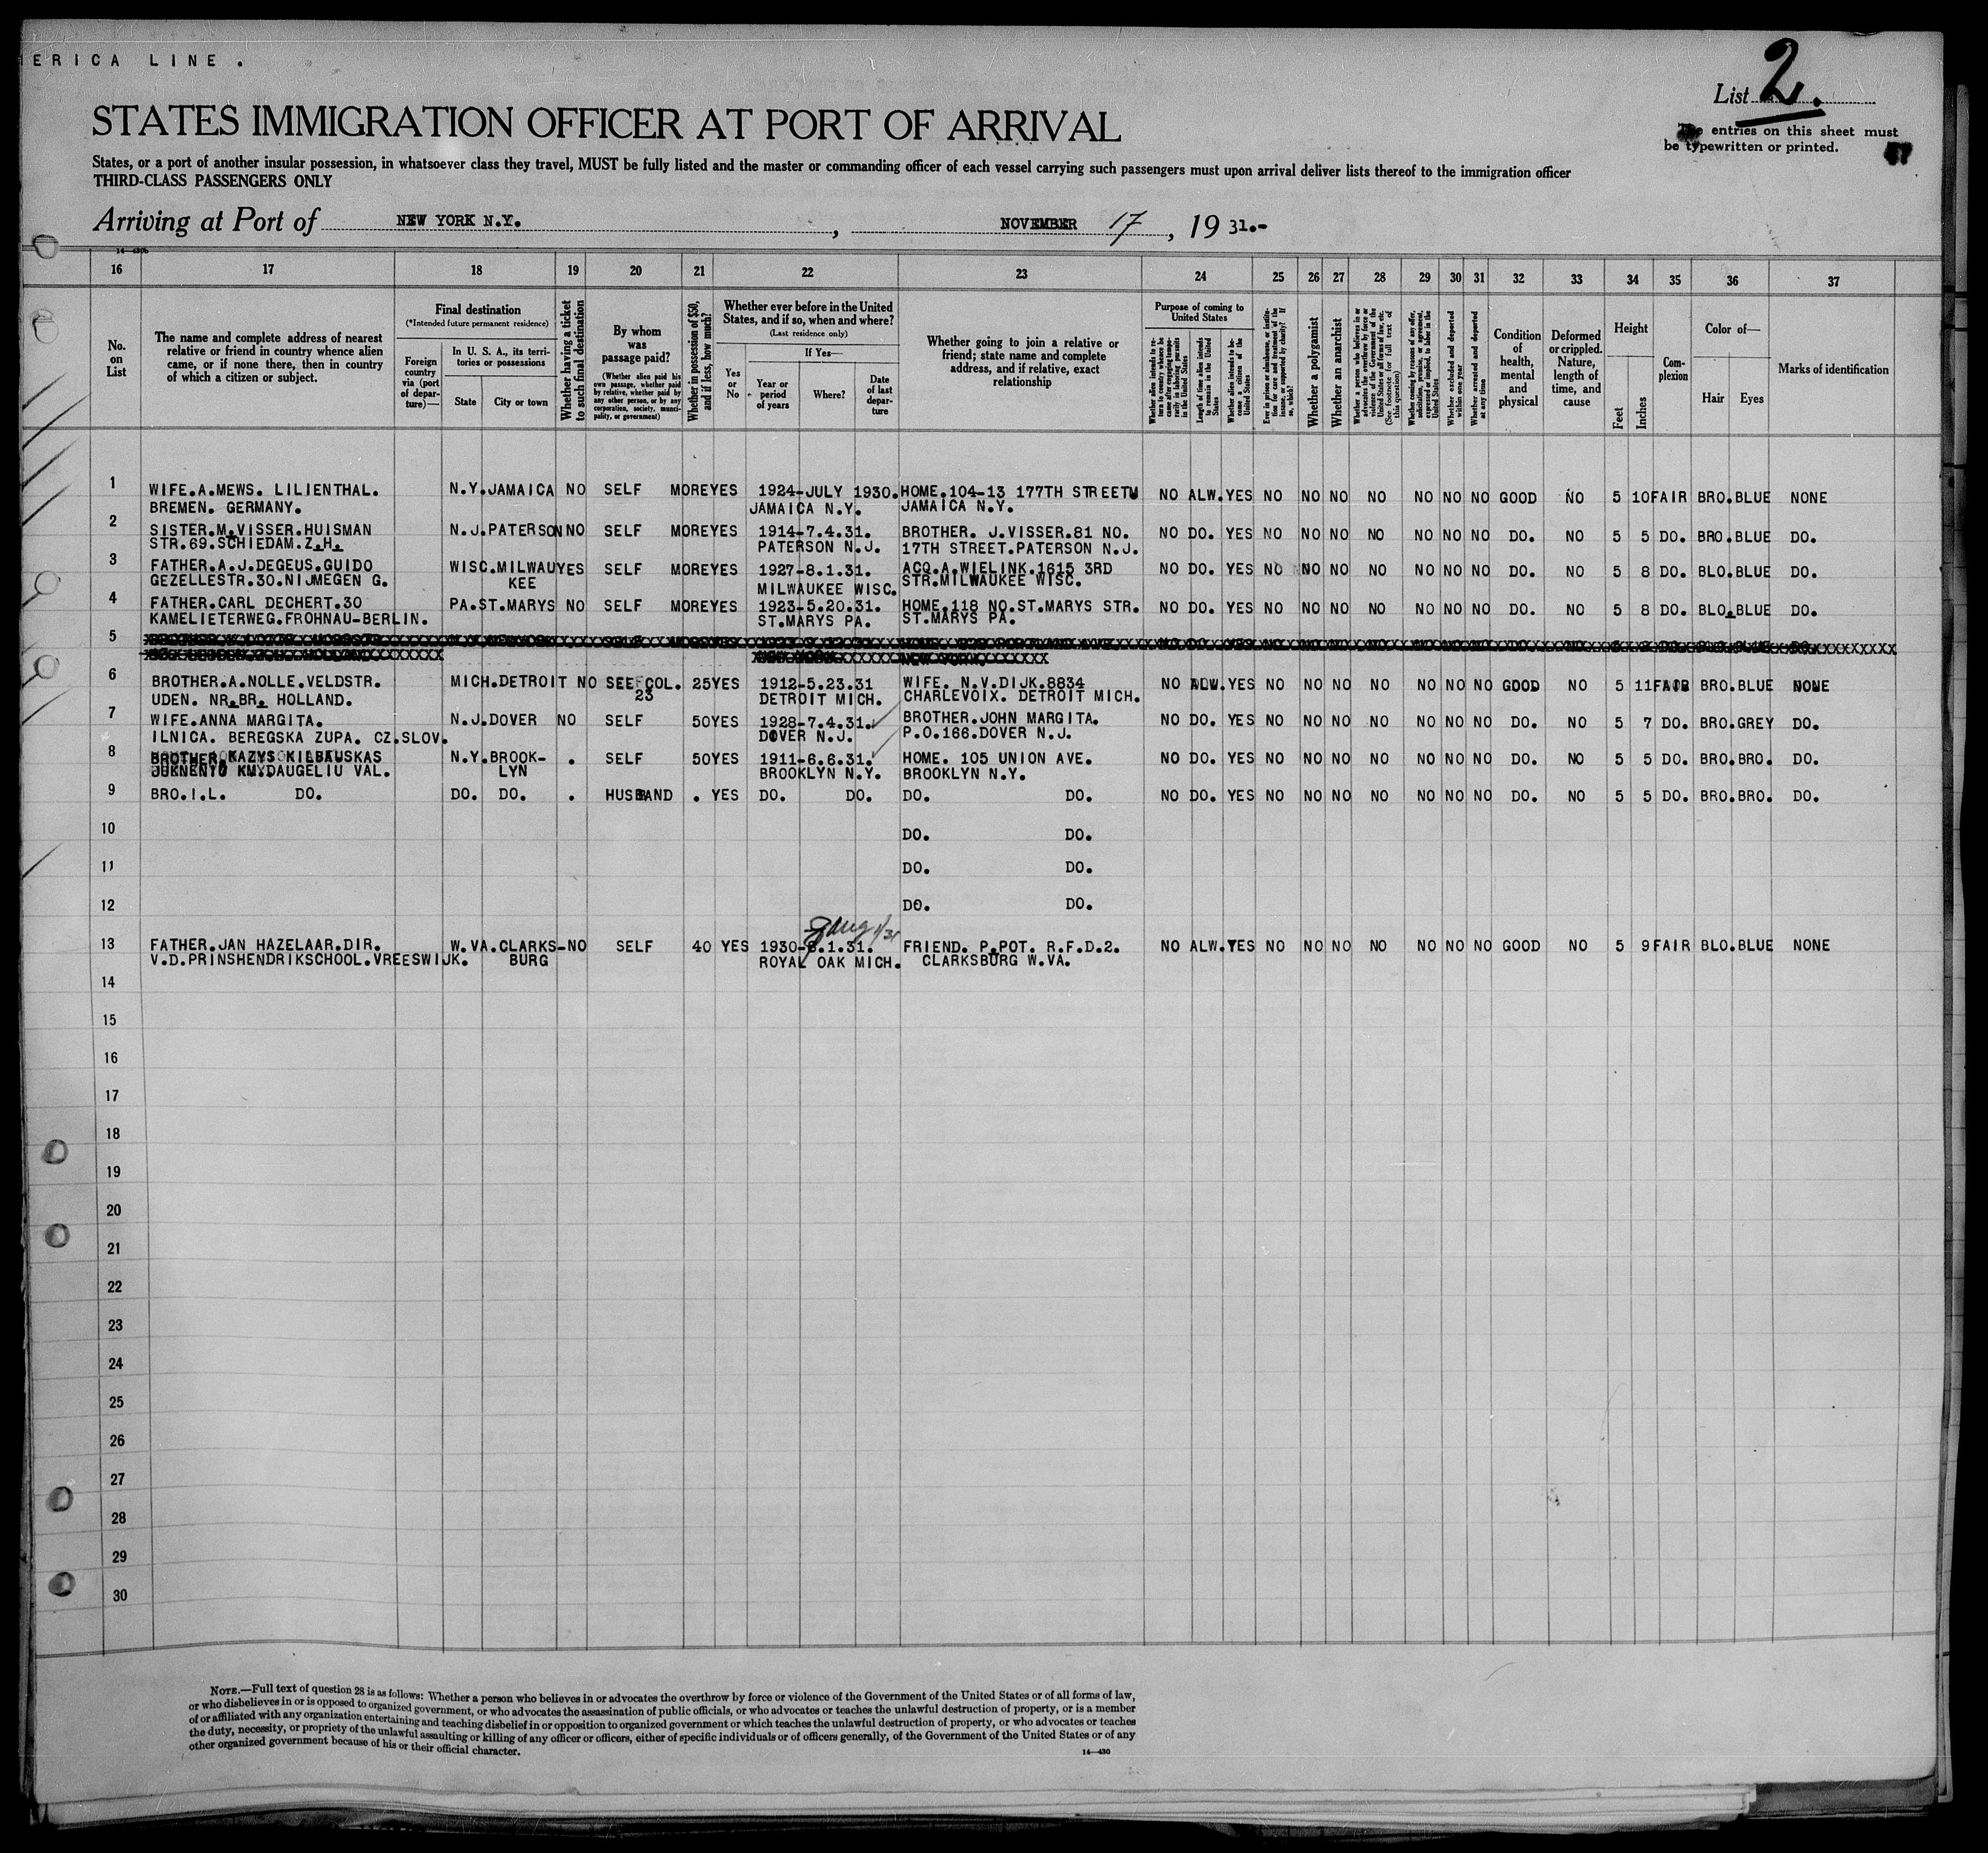 ERICA LINE .
List 2.
STATES IMMIGRATION OFFICER AT PORT OF ARRIVAL
The entries on this sheet must
be typewritten or printed.
States, or a port of another insular possession, in whatsoever class they travel, MUST be fully listed and the master or commanding officer of each vessel carrying such passengers must upon arrival deliver lists thereof to the immigration officer
THIRD-CLASS PASSENGERS ONLY
Arriving at Port of NEW YORK N.Y. , NOVEMBER 17 , 19 31.-
14—430b
16 17 18 19 20 21 22 23 24 25 26 27 28 29 30 31 32 33 34 35 36 37
No. on List
The name and complete address of nearest relative or friend in country whence alien came, or if none there, then in country of which a citizen or subject.
Final destination
(*Intended future permanent residence)
Foreign country via (port of departure)—
In U. S. A., its territories or possessions
State City or town
Whether having a ticket to such final destination
By whom was passage paid?
(Whether alien paid his own passage, whether paid by relative, whether paid by any other person, or by any corporation, society, municipality, or government)
Whether in possession of $50, and if less, how much?
Whether ever before in the United States, and if so, when and where?
(Last residence only)
Yes or No
If Yes—
Year or period of years
Where?
Date of last departure
Whether going to join a relative or friend; state name and complete address, and if relative, exact relationship
Purpose of coming to United States
Whether alien intends to return to country whence he came after engaging temporarily in laboring pursuits in the United States
Length of time alien intends to remain in the United States
Whether alien intends to become a citizen of the United States
Ever in prison or almshouse, or institution for care and treatment of the insane, or supported by charity? If so, which?
Whether a polygamist
Whether an anarchist
Whether a person who believes in or advocates the overthrow by force or violence of the Government of the United States or all forms of law, etc. (See footnote for full text of this question)
Whether coming by reasons of any offer, solicitation, promise, or agreement, expressed or implied, to labor in the United States
Whether excluded and deported within one year
Whether arrested and deported at any time
Condition of health, mental and physical
Deformed or crippled. Nature, length of time, and cause
Height
Feet Inches
Complexion
Color of—
Hair Eyes
Marks of identification
1 WIFE.A.MEWS. LILIENTHAL. N.Y.JAMAICA NO SELF MORE YES 1924-JULY 1930. HOME.104-13 177TH STREET NO ALW. YES NO NO NO NO NO NO NO GOOD NO 5 10 FAIR BRO.BLUE NONE
BREMEN. GERMANY. JAMAICA N.Y. JAMAICA N.Y.
2 SISTER.M.VISSER.HUISMAN N.J.PATERSON NO SELF MORE YES 1914-7.4.31. BROTHER. J.VISSER.81 NO. NO DO. YES NO NO NO NO NO NO NO DO. NO 5 5 DO. BRO.BLUE DO.
STR.69.SCHIEDAM.Z.H. PATERSON N.J. 17TH STREET.PATERSON N.J.
3 FATHER.A.J.DEGEUS.GUIDO WISC.MILWAU YES SELF MORE YES 1927-8.1.31. ACQ.A.WIELINK.1615 3RD NO DO. YES NO NO NO NO NO NO NO DO. NO 5 8 DO. BLO.BLUE DO.
GEZELLESTR.30.NIJMEGEN G. KEE MILWAUKEE WISC. STR.MILWAUKEE WISC.
4 FATHER.CARL DECHERT.30 PA.ST.MARYS NO SELF MORE YES 1923-5.20.31. HOME.118 NO.ST.MARYS STR. NO DO. YES NO NO NO NO NO NO NO DO. NO 5 8 DO. BLO.BLUE DO.
KAMELIETERWEG.FROHNAU-BERLIN. ST.MARYS PA. ST.MARYS PA.
5
6 BROTHER.A.NOLLE.VELDSTR. MICH.DETROIT NO SEE COL. 25 YES 1912-5.23.31 WIFE. N.V.DIJK.8834 NO ALW. YES NO NO NO NO NO NO NO GOOD NO 5 11 FAIR BRO.BLUE NONE
UDEN. NR.BR. HOLLAND. 23 DETROIT MICH. CHARLEVOIX. DETROIT MICH.
7 WIFE.ANNA MARGITA. N.J.DOVER NO SELF 50 YES 1928-7.4.31. BROTHER.JOHN MARGITA. NO DO. YES NO NO NO NO NO NO NO DO. NO 5 7 DO. BRO.GREY DO.
ILNICA. BEREGSKA ZUPA. CZ.SLOV. DOVER N.J. P.O.166.DOVER N.J.
8 BROTHER.KAZYS KILBAUSKAS N.Y.BROOK- . SELF 50 YES 1911-6.6.31. HOME. 105 UNION AVE. NO DO. YES NO NO NO NO NO NO NO DO. NO 5 5 DO. BRO.BRO. DO.
DAUGELIU VAL. LYN BROOKLYN N.Y. BROOKLYN N.Y.
9 BRO.I.L. DO. DO. DO. . HUSBAND . YES DO. DO. DO. DO. NO DO. YES NO NO NO NO NO NO NO DO. NO 5 5 DO. BRO.BRO. DO.
10 DO. DO.
11 DO. DO.
12 DO. DO.
13 FATHER.JAN HAZELAAR.DIR. W.VA.CLARKS- NO SELF 40 YES 1930-8.1.31. FRIEND. P.POT. R.F.D.2. NO ALW. YES NO NO NO NO NO NO NO GOOD NO 5 9 FAIR BLO.BLUE NONE
V.D.PRINSHENDRIKSCHOOL.VREESWIJK. BURG ROYAL OAK MICH. CLARKSBURG W.VA.
14
15
16
17
18
19
20
21
22
23
24
25
26
27
28
29
30
NOTE.—Full text of question 28 is as follows: Whether a person who believes in or advocates the overthrow by force or violence of the Government of the United States or of all forms of law,
or who disbelieves in or is opposed to organized government, or who advocates the assassination of public officials, or who advocates or teaches the unlawful destruction of property, or is a member
of or affiliated with any organization entertaining and teaching disbelief in or opposition to organized government or which teaches the unlawful destruction of property, or who advocates or teaches
the duty, necessity, or propriety of the unlawful assaulting or killing of any officer or officers, either of specific individuals or of officers generally, of the Government of the United States or of any
other organized government because of his or their official character.
14—430